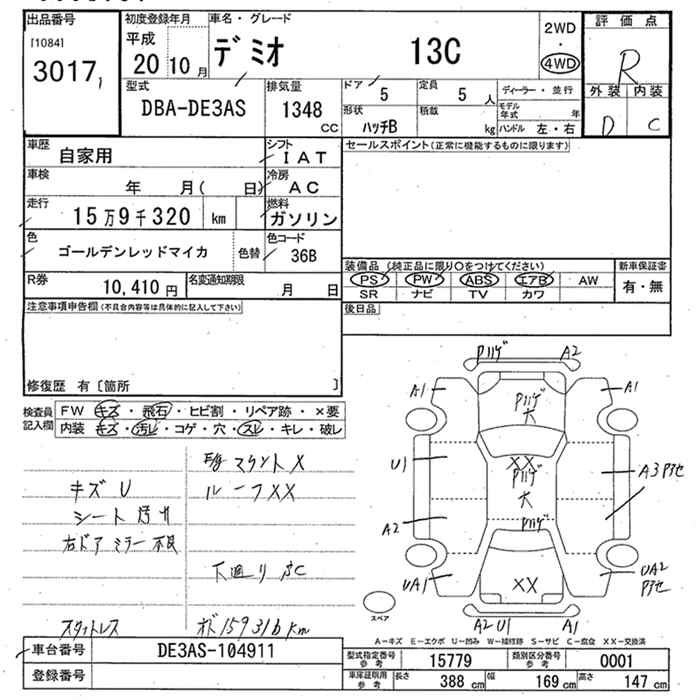 出品番号
[1084]
3017
初度登録年月
平成
20 10月
車名・グレード
デミオ 13C
2WD
・
4WD
評価点
R
外装 内装
D C
型式
DBA-DE3AS
排気量
1348
cc
ドア
5
定員
5 人
形状
ハッチB
積載
kg
ディーラー・並行
モデル年式 年
ハンドル 左・右
車歴
自家用
シフト
I A T
車検
年 月( 日)
冷房
A C
走行
15万9千320 km
燃料
ガソリン
色
ゴールデンレッドマイカ
色替
色コード
36B
R券
10,410 円
名変通知期限
月 日
セールスポイント(正常に機能するものに限ります)
装備品 (純正品に限り○をつけてください)
PS PW ABS エアB AW
SR ナビ TV カワ
新車保証書
有・無
後日品
注意事項申告欄(不具合内容等は具体的に記入して下さい)
修復歴 有〔箇所 〕
検査員記入欄
FW キズ・飛石・ヒビ割・リペア跡・×要
内装 キズ・汚レ・コゲ・穴・スレ・キレ・破レ
キズ U
シート 汚れ
右ドアミラー不良
E/g マウント X
ルーフXX
下廻りサビC
スタットレス
オド159316km
Pハゲ A2
A1 A1
Pハゲ
大
U1
XX
Pハゲ
大
A3
A2
Pハゲ
UA1
XX
UA2
A2 U1 A1
スペア
A-キズ E-エクボ U-凹み W-補修跡 S-サビ C-腐食 XX-交換済
車台番号
DE3AS-104911
登録番号
型式指定番号
参考
15779
類別区分番号
参考
0001
車庫証明用
参考
長さ 388 cm 幅 169 cm 高さ 147 cm